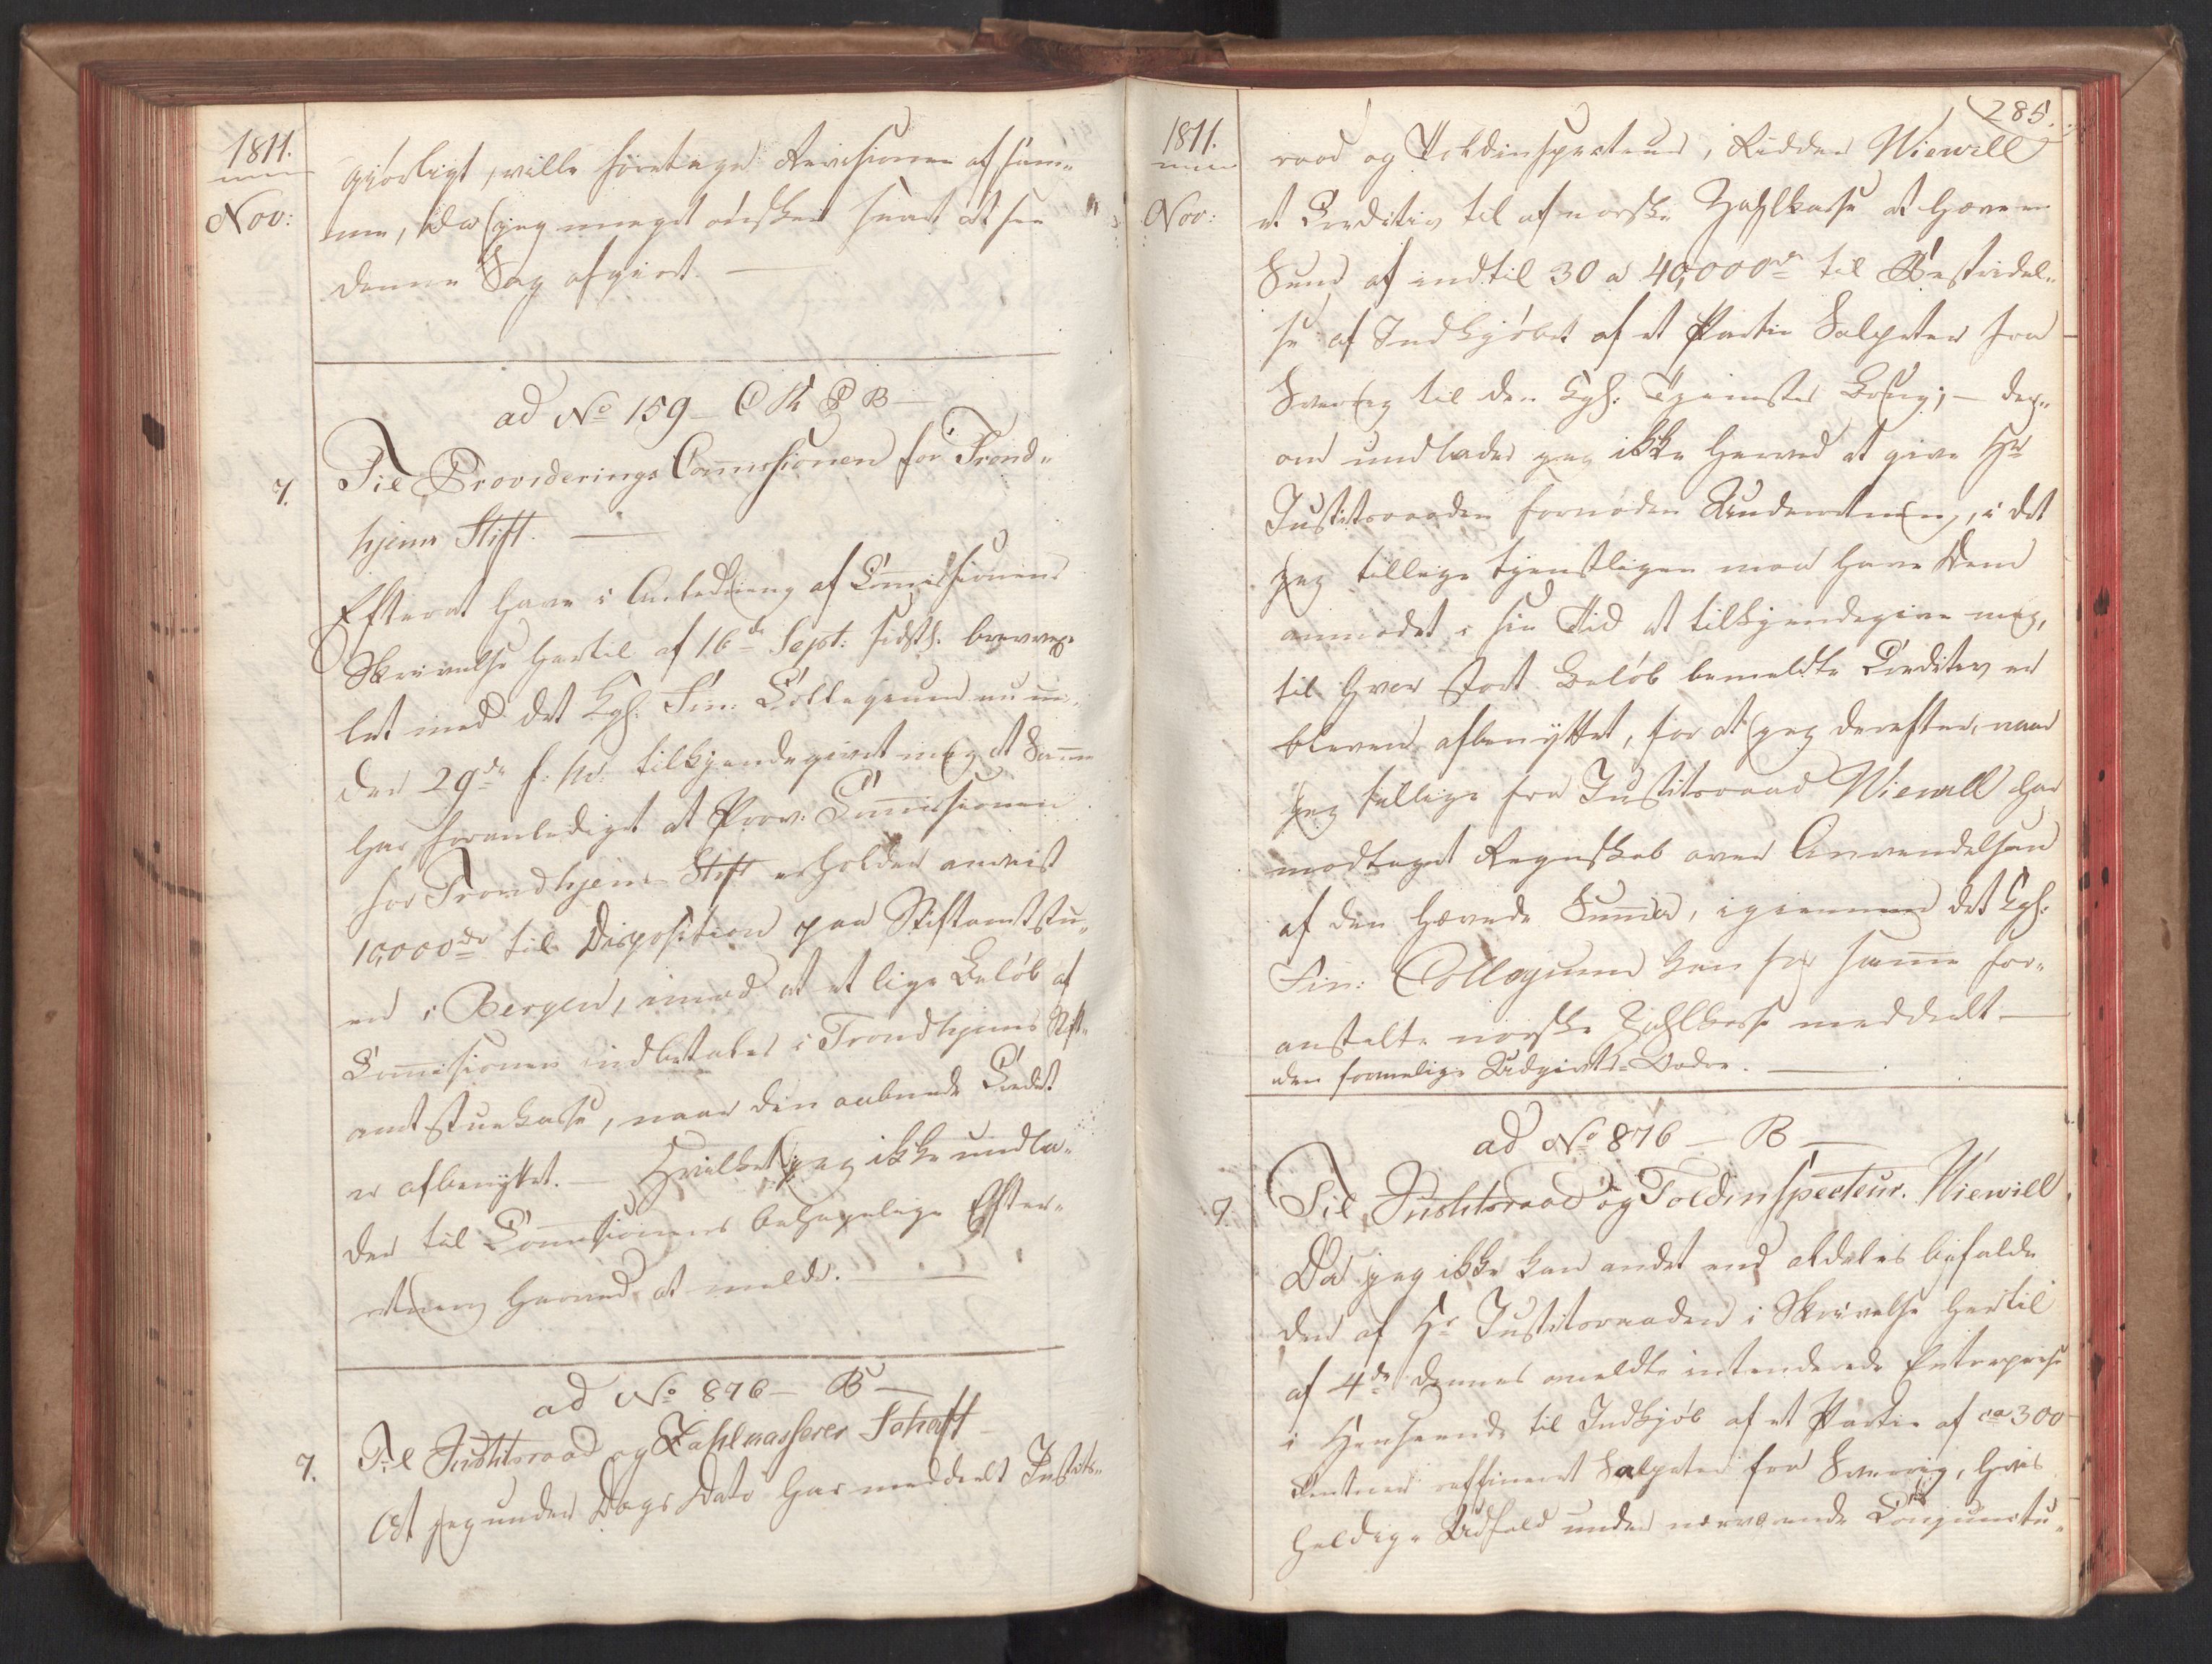 1811.
Nov:
giørligt, ville foretage Revisionen af sam-
me, da jeg meget ønsker snart at see
denne Sag afgiort. —
ad No 159 — C K P B —
7.
Til Providerings Commissionen for Trond-
hjems Stift. —
Efterat have i Anledning af Commissionens
Skrivelse hertil af 16de Sept: sidstl. brevvex-
let med det Kgl. Fin: Collegium
den 29de f. M. tilkjendegivet mig at Samme
har foranlediget at Prov: Commissionen
for Trondhjems Stift erholder anviist
10,000 rd til Disposition paa Stiftamtstu-
en i Bergen, imod at et lige Beløb af
Commissionen indbetales i Trondhjems Stift-
amtstuekasse, naar den aabnede Credit
er afbenyttet. — Hvilket jeg ikke undla-
der til Commissionens behagelige Efter-
retning herved at melde. —
ad No 876 — B —
7.
Til Justitsraad og Zahlkasserer Schaft
At jeg under Dags Dato har meddeelt Justits-
285.
1811.
Nov:
raad og Toldinspecteur, Ridder Wiewill
et Creditiv til af norske Zahlkasse at hæve en
Sum af indtil 30 a 40,000 rd til Bestridel-
se af Indkjøbet af et Partie Salpeter fra
Sverrig til den Kgl: Tjenestes Brug; — der-
om undlader jeg ikke herved at give Hr
Justitsraaden fornøden Underretning, i det
jeg tillige tjenstligen maa have Dem
anmodet i sin Tid at tilkjendegive mig,
til hvor stort Beløb bemeldte Creditiv er
bleven afbenyttet, for at jeg derefter, naar
jeg tillige fra Justitsraad Wiewill har
modtaget Regnskab over Anvendelsen
af den hævede Summa, igiennem det Kgl:
Fin: Collegium kan see samme for-
anstalte norske Zahlkasse meddeelt —
den formelige Udgivts-Ordre. —
ad No 876 — B —
7.
Til Justitsraad og Toldinspecteur Wiewill
Da jeg ikke kan andet end aldeles bifalde
den af Hr Justitsraaden i Skrivelse hertil
af 4de dennes meldte intenderede Entreprise
i Henseende til Indkjøb af et Partie af ca 300
Centner raffineret Salpeter fra Sverrig, hvis
heldige Udfald under nærværende Conjunctu-